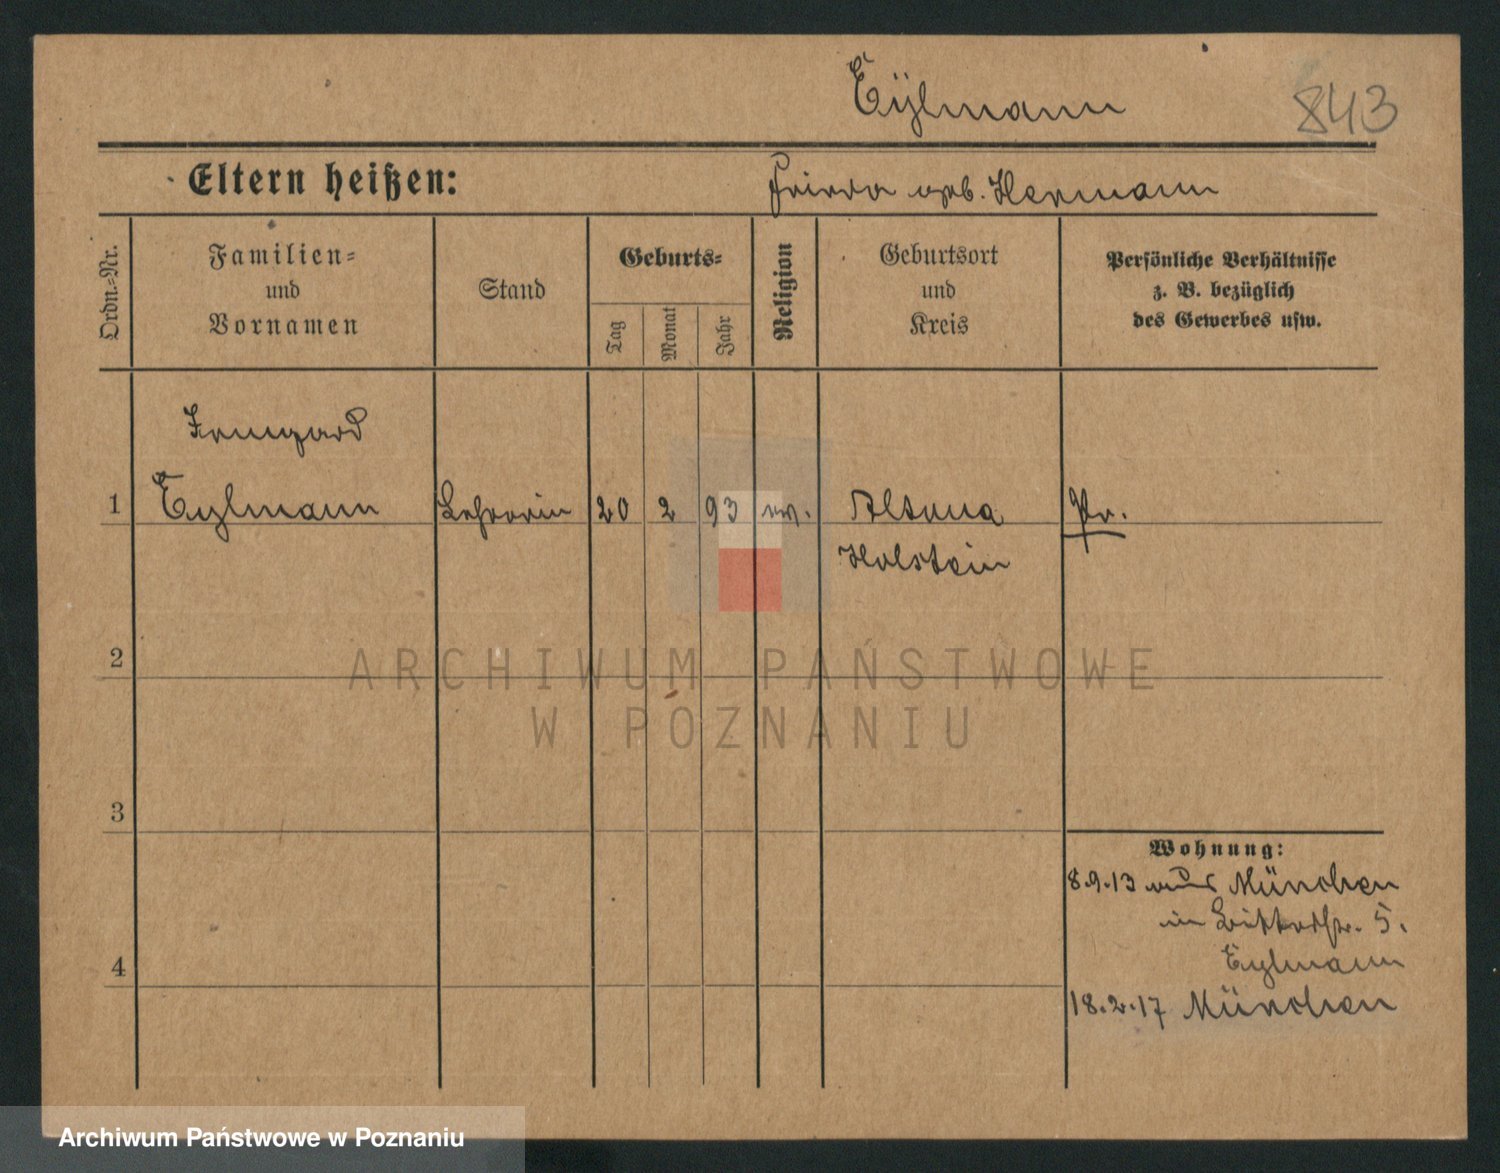 Eÿlmann
843
Eltern heißen:
geb. Hermann
Ordn.-Nr.
Familien-
und
Vornamen
Stand
Geburts-
Tag
Monat
Jahr
Religion
Geburtsort
und
Kreis
Persönliche Verhältnisse
z. B. bezüglich
des Gewerbes usw.
Irmgard
1 Eylmann Lehrerin 20 2 93 ev. Altona Pr.
Holstein
2
3
4
Wohnung:
8.9.13 aus München
in 5.
Eylmann
18.2.17 München
ARCHIWUM PAŃSTWOWE
W POZNANIU
Archiwum Państwowe w Poznaniu